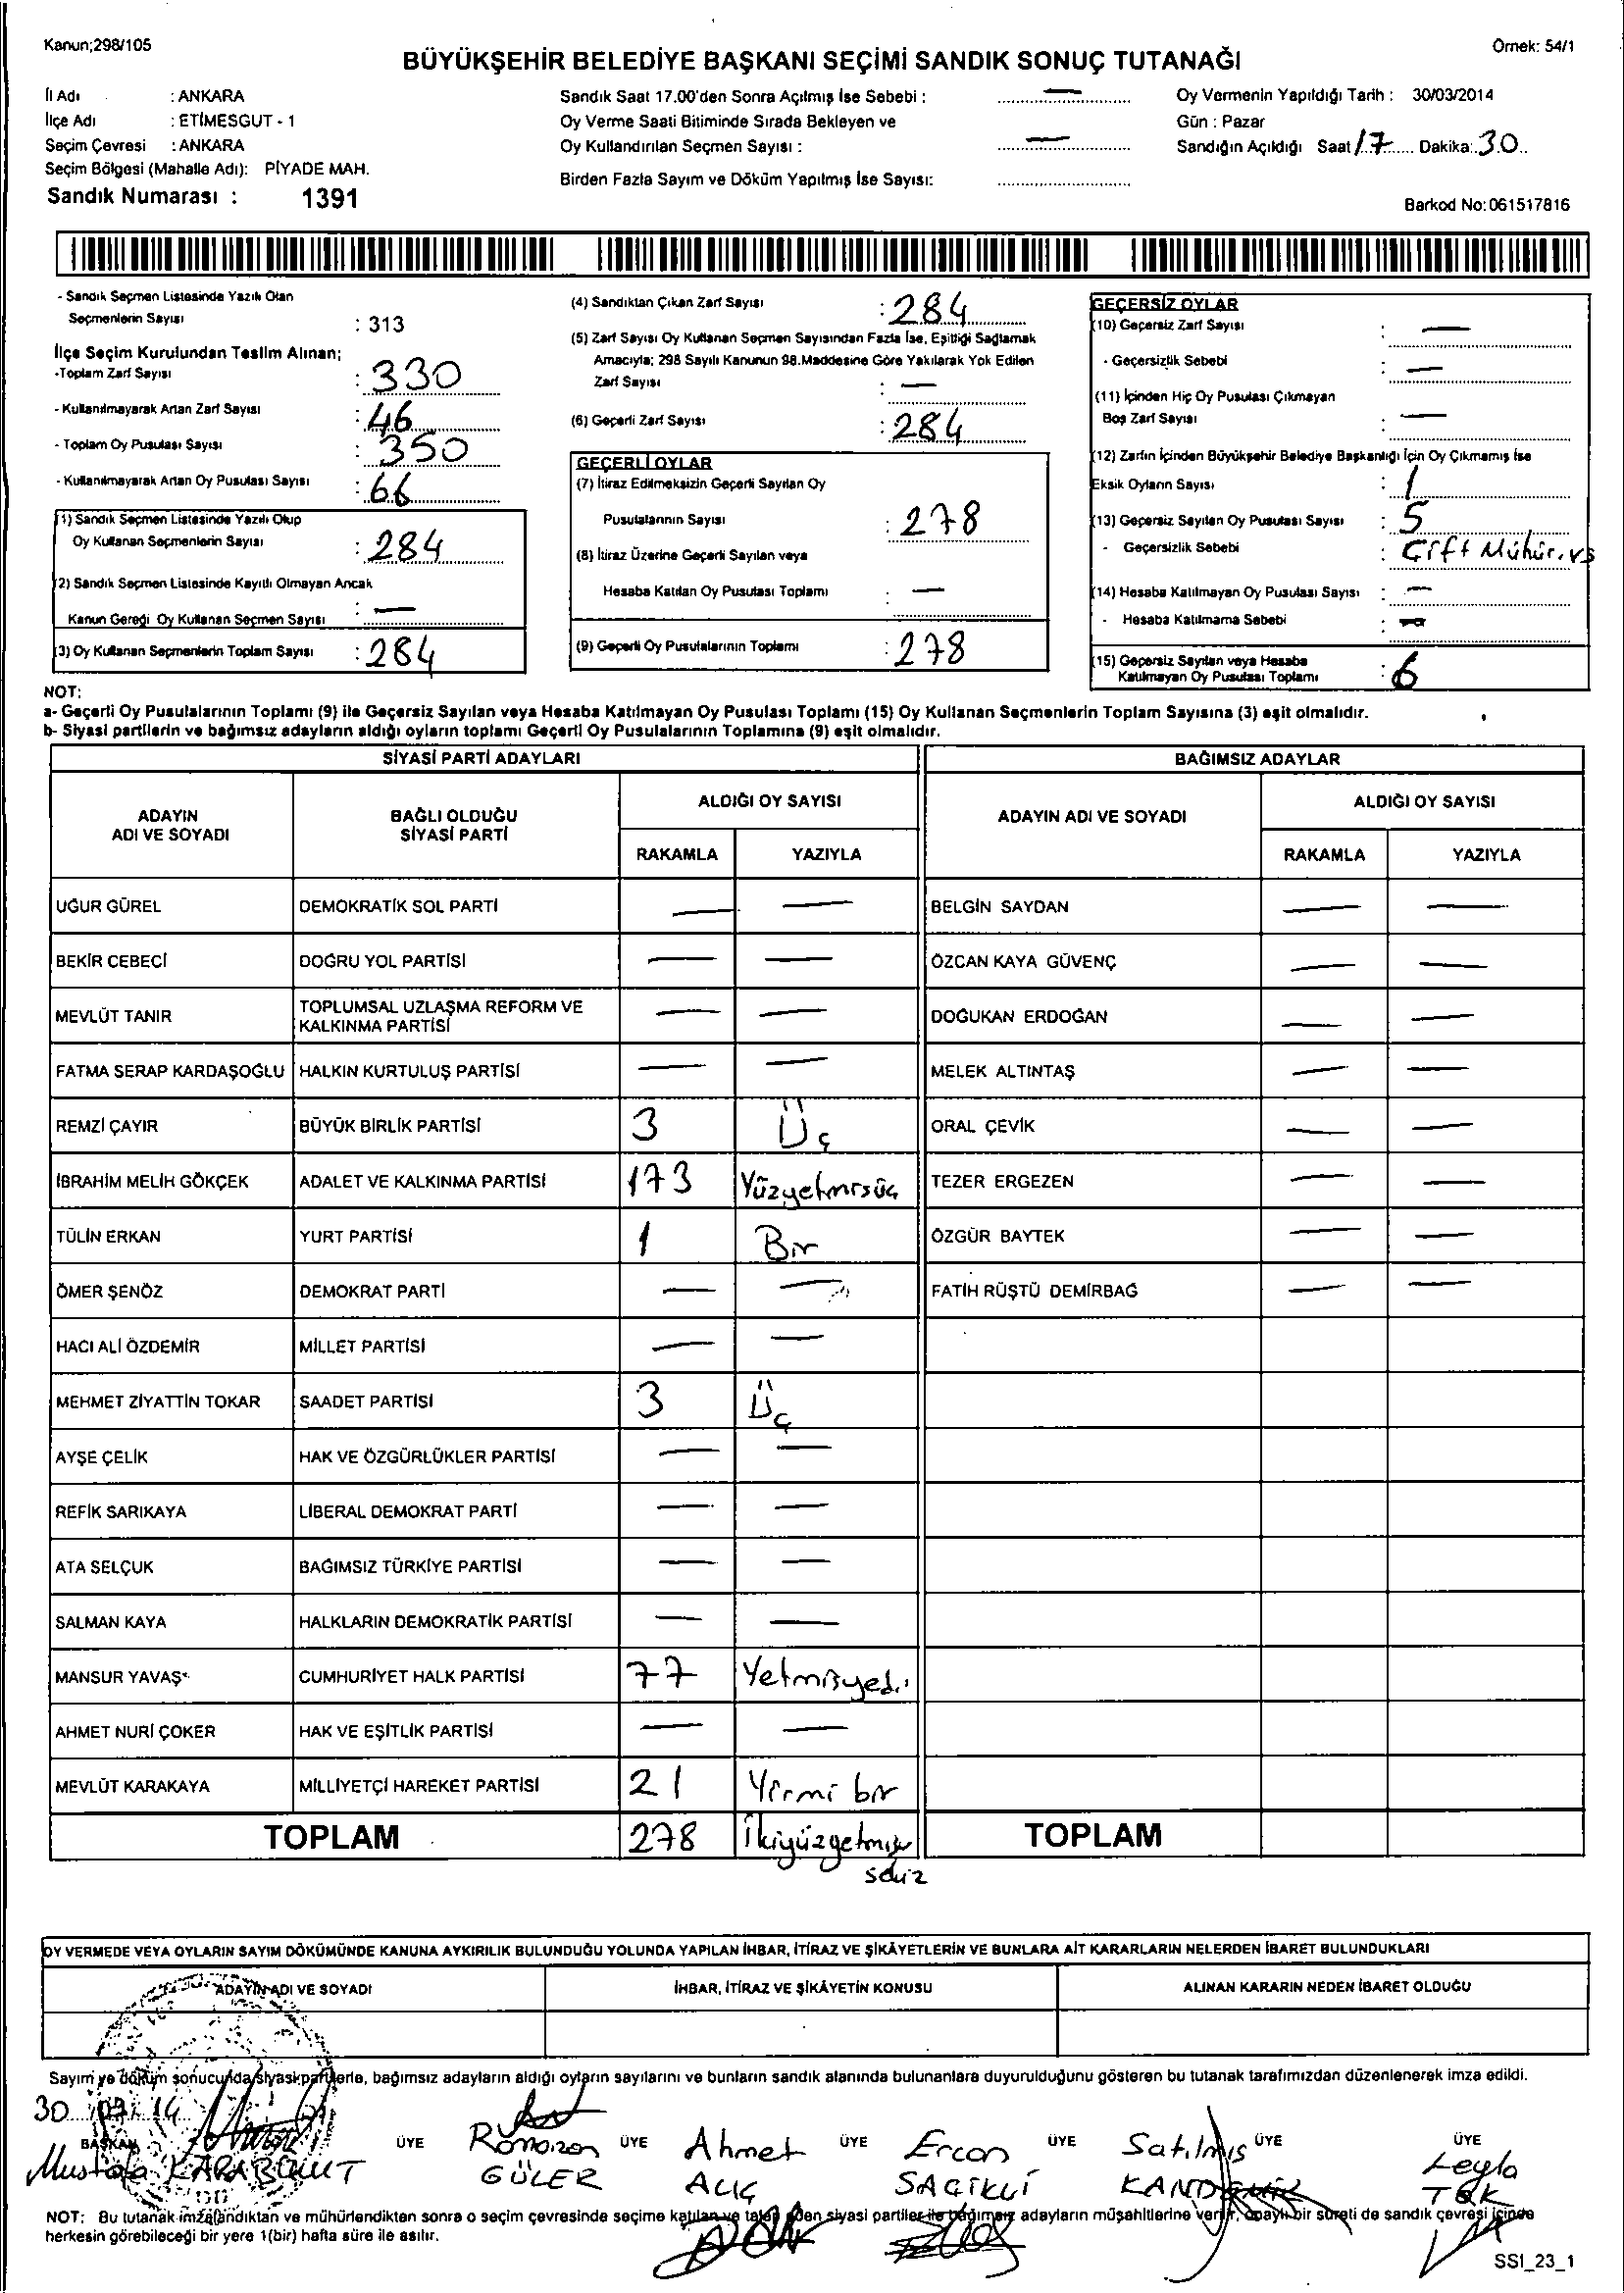 Kanun;298/105
Örnek: 54/1
BÜYÜKŞEHİR BELEDİYE BAŞKANI SEÇİMİ SANDIK SONUÇ TUTANAĞI
İl Adı : ANKARA
İlçe Adı : ETİMESGUT - 1
Seçim Çevresi : ANKARA
Seçim Bölgesi (Mahalle Adı): PİYADE MAH.
Sandık Numarası : 1391
Sandık Saat 17.00'den Sonra Açılmış İse Sebebi : —
Oy Verme Saati Bitiminde Sırada Bekleyen ve
Oy Kullandırılan Seçmen Sayısı : —
Birden Fazla Sayım ve Döküm Yapılmış İse Sayısı:
Oy Vermenin Yapıldığı Tarih : 30/03/2014
Gün : Pazar
Sandığın Açıldığı Saat 17 Dakika: 30
Barkod No:061517816
- Sandık Seçmen Listesinde Yazılı Olan
Seçmenlerin Sayısı : 313
İlçe Seçim Kurulundan Teslim Alınan;
-Toplam Zarf Sayısı : 330
- Kullanılmayarak Artan Zarf Sayısı : 46
- Toplam Oy Pusulası Sayısı : 350
- Kullanılmayarak Artan Oy Pusulası Sayısı : 66
(1) Sandık Seçmen Listesinde Yazılı Olup
Oy Kullanan Seçmenlerin Sayısı : 284
(2) Sandık Seçmen Listesinde Kayıtlı Olmayan Ancak
Kanun Gereği Oy Kullanan Seçmen Sayısı : —
(3) Oy Kullanan Seçmenlerin Toplam Sayısı : 284
(4) Sandıktan Çıkan Zarf Sayısı : 284
(5) Zarf Sayısı Oy Kullanan Seçmen Sayısından Fazla İse, Eşitliği Sağlamak
Amacıyla; 298 Sayılı Kanunun 98.Maddesine Göre Yakılarak Yok Edilen
Zarf Sayısı : —
(6) Geçerli Zarf Sayısı : 284
GEÇERLİ OYLAR
(7) İtiraz Edilmeksizin Geçerli Sayılan Oy
Pusulalarının Sayısı : 278
(8) İtiraz Üzerine Geçerli Sayılan veya
Hesaba Katılan Oy Pusulası Toplamı : —
(9) Geçerli Oy Pusulalarının Toplamı : 278
GEÇERSİZ OYLAR
(10) Geçersiz Zarf Sayısı : —
- Geçersizlik Sebebi : —
(11) İçinden Hiç Oy Pusulası Çıkmayan
Boş Zarf Sayısı : —
(12) Zarfın İçinden Büyükşehir Belediye Başkanlığı İçin Oy Çıkmamış İse
Eksik Oyların Sayısı : 1
(13) Geçersiz Sayılan Oy Pusulası Sayısı : 5
- Geçersizlik Sebebi : Çift Mühür.vs
(14) Hesaba Katılmayan Oy Pusulası Sayısı : —
- Hesaba Katılmama Sebebi : —
(15) Geçersiz Sayılan veya Hesaba
Katılmayan Oy Pusulası Toplamı : 6
NOT:
a- Geçerli Oy Pusulalarının Toplamı (9) ile Geçersiz Sayılan veya Hesaba Katılmayan Oy Pusulası Toplamı (15) Oy Kullanan Seçmenlerin Toplam Sayısına (3) eşit olmalıdır.
b- Siyasi partilerin ve bağımsız adayların aldığı oyların toplamı Geçerli Oy Pusulalarının Toplamına (9) eşit olmalıdır.
SİYASİ PARTİ ADAYLARI
ADAYIN ADI VE SOYADI BAĞLI OLDUĞU SİYASİ PARTİ ALDIĞI OY SAYISI
RAKAMLA YAZIYLA
UĞUR GÜREL DEMOKRATİK SOL PARTİ — —
BEKİR CEBECİ DOĞRU YOL PARTİSİ — —
MEVLÜT TANIR TOPLUMSAL UZLAŞMA REFORM VE KALKINMA PARTİSİ — —
FATMA SERAP KARDAŞOĞLU HALKIN KURTULUŞ PARTİSİ — —
REMZİ ÇAYIR BÜYÜK BİRLİK PARTİSİ 3 Üç
İBRAHİM MELİH GÖKÇEK ADALET VE KALKINMA PARTİSİ 173 Yüzyetmişüç
TÜLİN ERKAN YURT PARTİSİ 1 Bir
ÖMER ŞENÖZ DEMOKRAT PARTİ — —
HACI ALİ ÖZDEMİR MİLLET PARTİSİ — —
MEHMET ZİYATTİN TOKAR SAADET PARTİSİ 3 Üç
AYŞE ÇELİK HAK VE ÖZGÜRLÜKLER PARTİSİ — —
REFİK SARIKAYA LİBERAL DEMOKRAT PARTİ — —
ATA SELÇUK BAĞIMSIZ TÜRKİYE PARTİSİ — —
SALMAN KAYA HALKLARIN DEMOKRATİK PARTİSİ — —
MANSUR YAVAŞ CUMHURİYET HALK PARTİSİ 77 Yetmişyedi
AHMET NURİ ÇOKER HAK VE EŞİTLİK PARTİSİ — —
MEVLÜT KARAKAYA MİLLİYETÇİ HAREKET PARTİSİ 21 Yirmi bir
TOPLAM 278 İkiyüzyetmiş
sekiz
BAĞIMSIZ ADAYLAR
ADAYIN ADI VE SOYADI ALDIĞI OY SAYISI
RAKAMLA YAZIYLA
BELGİN SAYDAN — —
ÖZCAN KAYA GÜVENÇ — —
DOĞUKAN ERDOĞAN — —
MELEK ALTINTAŞ — —
ORAL ÇEVİK — —
TEZER ERGEZEN — —
ÖZGÜR BAYTEK — —
FATİH RÜŞTÜ DEMİRBAĞ — —
TOPLAM
OY VERMEDE VEYA OYLARIN SAYIM DÖKÜMÜNDE KANUNA AYKIRILIK BULUNDUĞU YOLUNDA YAPILAN İHBAR, İTİRAZ VE ŞİKÂYETLERİN VE BUNLARA AİT KARARLARIN NELERDEN İBARET BULUNDUKLARI
ADAYIN ADI VE SOYADI İHBAR, İTİRAZ VE ŞİKÂYETİN KONUSU ALINAN KARARIN NEDEN İBARET OLDUĞU
Sayım ve döküm sonucunda siyasi partilerle, bağımsız adayların aldığı oyların sayılarını ve bunların sandık alanında bulunanlara duyurulduğunu gösteren bu tutanak tarafımızdan düzenlenerek imza edildi.
30 / 03 / 14
BAŞKAN ÜYE ÜYE ÜYE ÜYE ÜYE ÜYE
Mustafa KARABULUT
Ramazan GÜLER
Ahmet ALIÇ
Ercan
Satılmış
Leyla TEK
NOT: Bu tutanak imzalandıktan ve mühürlendikten sonra o seçim çevresinde seçime katılan ve talep eden siyasi partiler ile bağımsız adayların müşahitlerine verilir, onaylı bir sureti de sandık çevresi içinde
herkesin görebileceği bir yere 1(bir) hafta süre ile asılır.
SSI_23_1